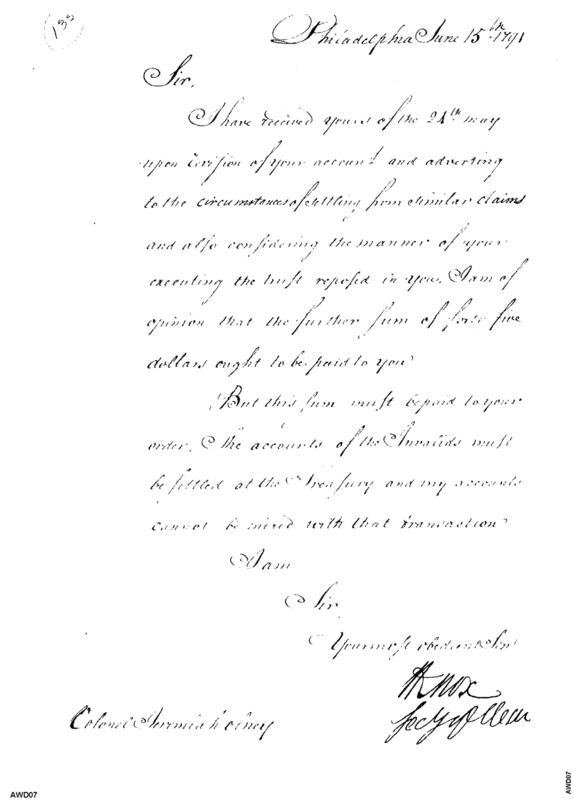 133
Philadelphia June 15th 1791
Sir,
I have received yours of the 24th may
upon revision of your account and adverting
to the circumstances of settling from similar claims
and also considering the manner of your
executing the trust reposed in you. I am of
opinion that the further sum of forte five
dollars ought to be paid to you
But this sum must be paid to your
order, The accounts of the Invalids must
be settled at the Treasury and my accounts
cannot be mixed with that transaction
I am
Sir
Your most obedient Serv
HKnox
Secy of War
Colonel Jeremiah Olney
AWD07
AWD07